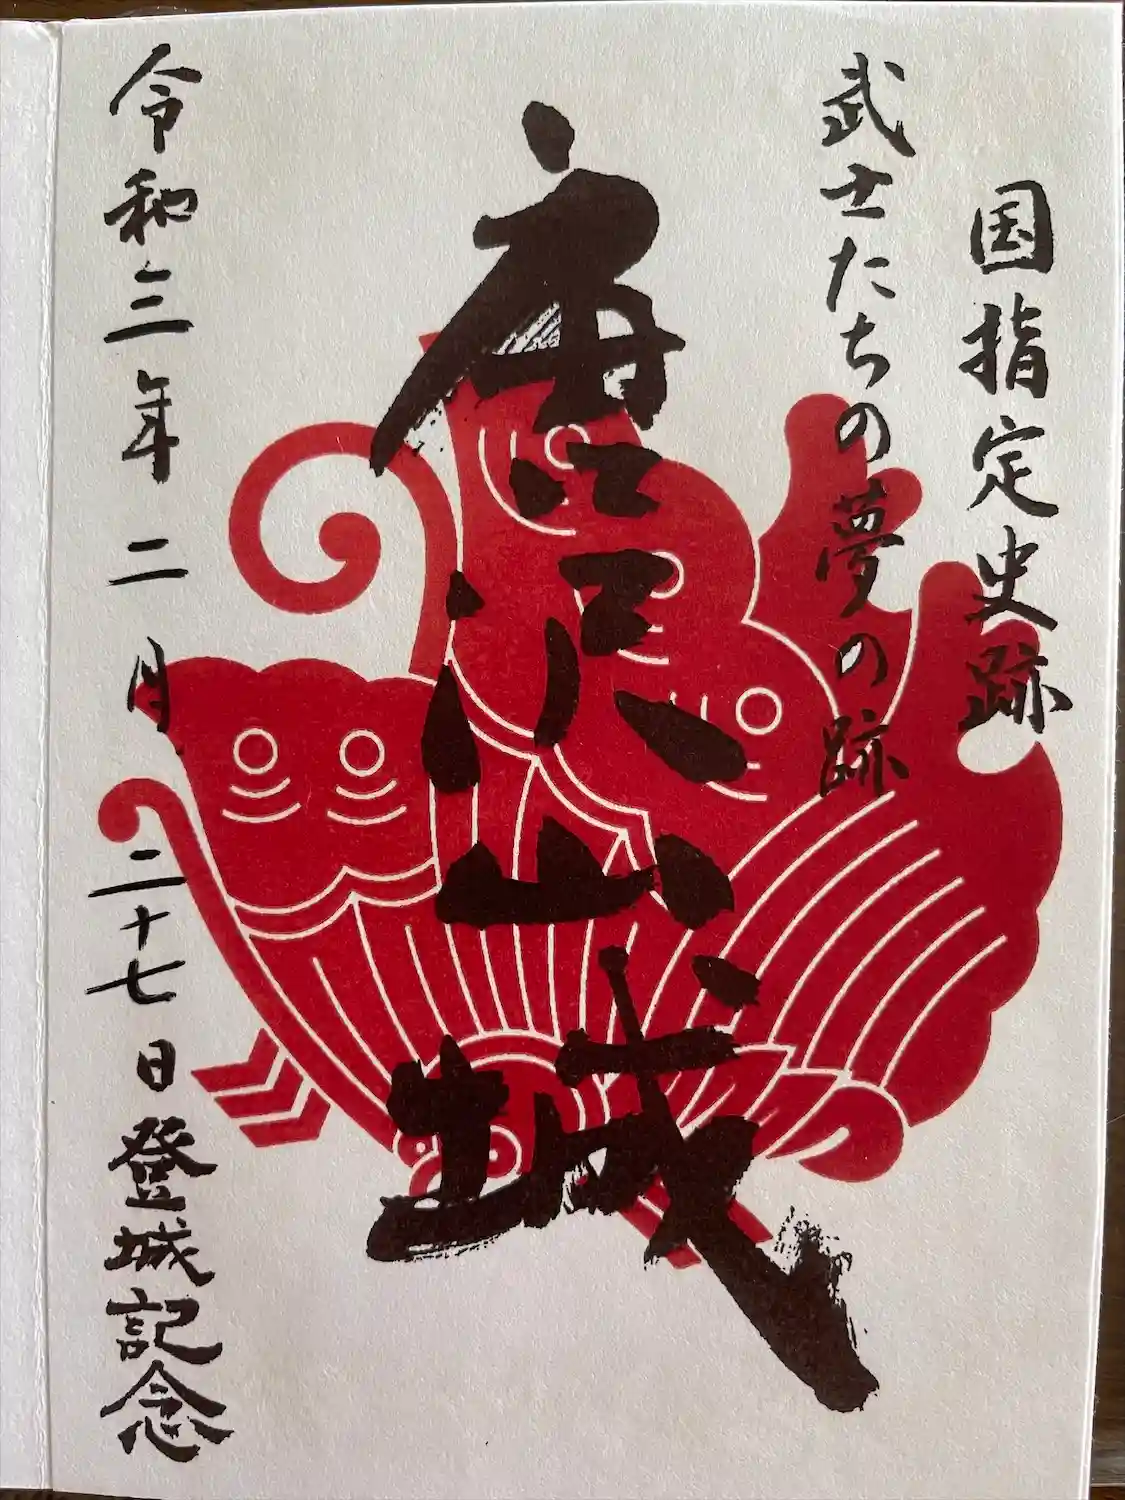 国指定史跡
武士たちの夢の跡
唐沢山城
令和三年二月二十七日登城記念